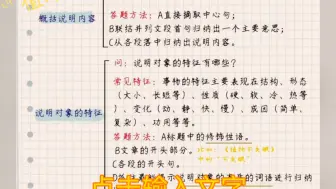 概括说明内容
答题方法：A直接摘取中心句；
B联结并列文段首句归纳出一个主要意思；
(C从各段落中归纳出说明内容。
问：说明对象的特征有哪些？
常见特征：事物的特征主要表现在结构、形态
（大小、长短等）、性质（硬、软、冷、热
等）、变化（动、静、快、慢）、成因（简单、
复杂）、功用等）。
说明对象的特征
答题方法：A标题中的修饰性语。
B文章的开头部分。
C各段的开头句。
点击输入文字
说明对象的
的词语进行归纳